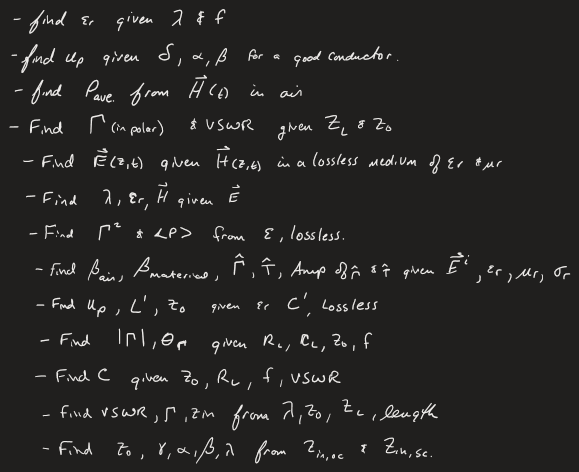 - find εr given λ & f
- find up given δ, α, β for a good conductor.
- find Pave. from H⃗(t) in air
- Find Γ (in polar) & VSWR given ZL & Z0
- Find E⃗(z,t) given H⃗(z,t) in a lossless medium of εr & μr
- Find λ, εr, H⃗ given E⃗
- Find Γ² & <P> from ε, lossless.
- find βair, βmaterial, Γ̂, T̂, Amp of r̂ & t̂ given E⃗ⁱ, εr, μr, σr
- Find up, L', Z0 given εr C', Lossless
- Find |Γ|, θΓ given RL, CL, Z0, f
- Find C given Z0, RL, f, VSWR
- find VSWR, Γ, Zin from λ, Z0, ZL, length
- Find Z0, γ, α, β, λ from Zin,oc & Zin,sc.